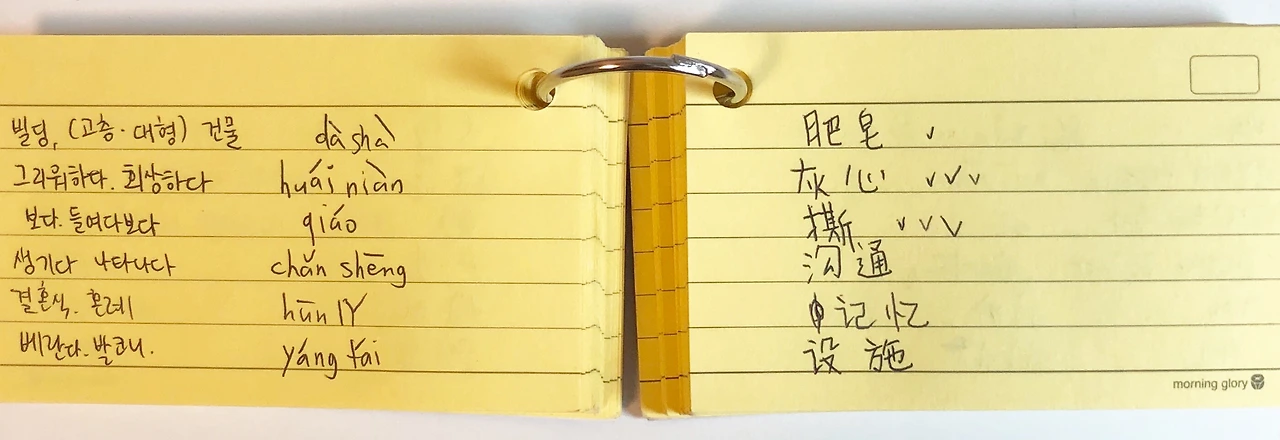 빌딩, (고층·대형) 건물 dàshà
그리워하다. 회상하다 huái niàn
보다. 들여다보다 qiáo
생기다 나타나다 chǎn shēng
결혼식. 혼례 hūn lǐ
베란다. 발코니. yáng tái
肥皂 ✓
灰心 ✓✓✓
撕 ✓✓✓
沟通
记忆
设施
morning glory